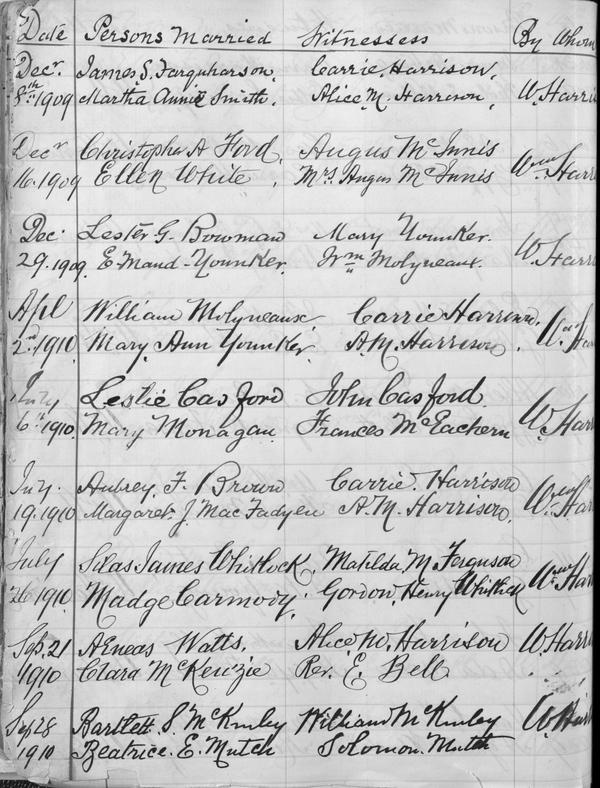 Date Persons Married Witnessess By Whom
Decr. James S. Farquharson, Carrie Harrison,
8th 1909 Martha Annie Smith, Alice M. Harrison, W. Harri
Decr Christopher A Ford, Angus McInnis
16. 1909 Ellen White, Mrs Angus McInnis Wm Harr
Dec. Lester G. Bowman Mary Younker.
29. 1909. E. Maud Younker. Wm Molyneaux. W. Harri
Apl William Molyneaux Carrie Harrison.
2nd 1910 Mary Ann Younker A.M. Harrison. Wm Har
July Leslie Casford John Casford
6th 1910 Mary Monagan Frances McEachern W. Harr
July. Aubrey F. Brown Carrie Harrison
19. 1910 Margaret J MacFadyen A.M. Harrison. Wm Har
July Silas James Whitlock, Matilda M Ferguson
26 1910 Madge Carmody. Gordon Henry Whitlock Wm Har
Sep. 21 AEneas Watts. Alice M. Harrison W. Harri
1910 Clara McKenzie Rev. E. Bell
Sep 28 Bartlett S. McKinley William McKinley W. Harr
1910 Beatrice. E. Mutch Solomon Mutch